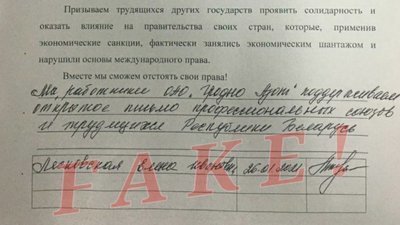 Призываем трудящихся других государств проявить солидарность и
оказать влияние на правительства своих стран, которые, применив
экономические санкции, фактически занялись экономическим шантажом и
нарушили основы международного права.
Вместе мы сможем отстоять свои права!
Мы работники ОАО "Гродно Азот" поддерживаем
открытое письмо профессиональных союзов
и трудящихся Республики Беларусь
Елена
FAKE!